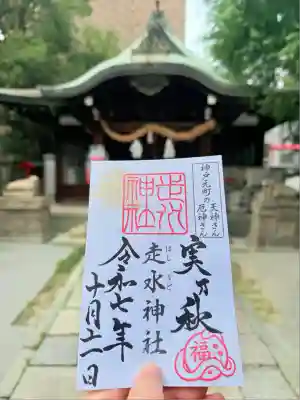 神戸元町の
天神さん
厄神さん
実りの秋
走水神社
はしうど
令和七年
十月十二日
福